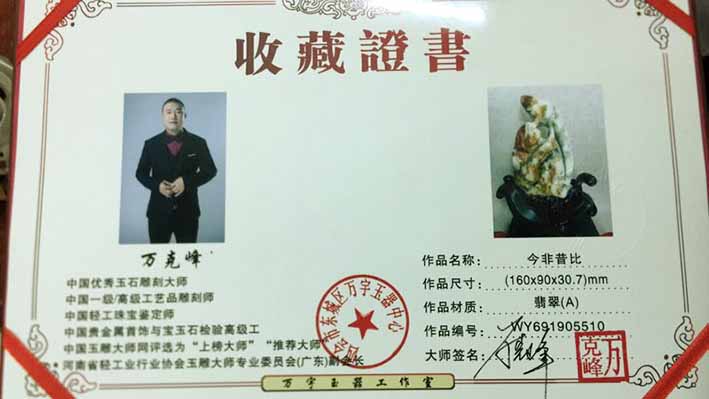 收藏證書
万克峰
中国优秀玉石雕刻大师
中国一级/高级工艺品雕刻师
中国轻工珠宝鉴定师
中国贵金属首饰与宝玉石检验高级工
中国玉雕大师网评选为“上榜大师”“推荐大师”
河南省轻工业行业协会玉雕大师专业委员会(广东)副会长
市东城区万字玉器中心
作品名称： 今非昔比
作品尺寸： (160x90x30.7)mm
作品材质： 翡翠(A)
作品编号： WY691905510
大师签名：
万克峰
万字玉器工作室